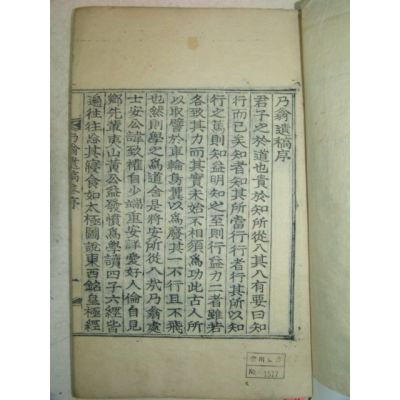 乃翁遺稿序
君子之於道也貴於知所從入其入有要曰知
行而已矣知者知其所當行行者行其所以知
行之篤則知益明知之至則行益力二者雖若
各致其力而其實未始不相須爲功此古人所
以取譬於車輪鳥翼以爲廢其一不行且不飛
也然則學之爲道舍是將安所從入哉乃翁處
士安公諱致權自少端重安詳愛好人倫自見
鄉先輩夷山黃公益發憤爲學讀四子六經皆
遍往往忘其寢食如太極圖說東西銘皇極經
乃翁遺稿序
一
No. 1577